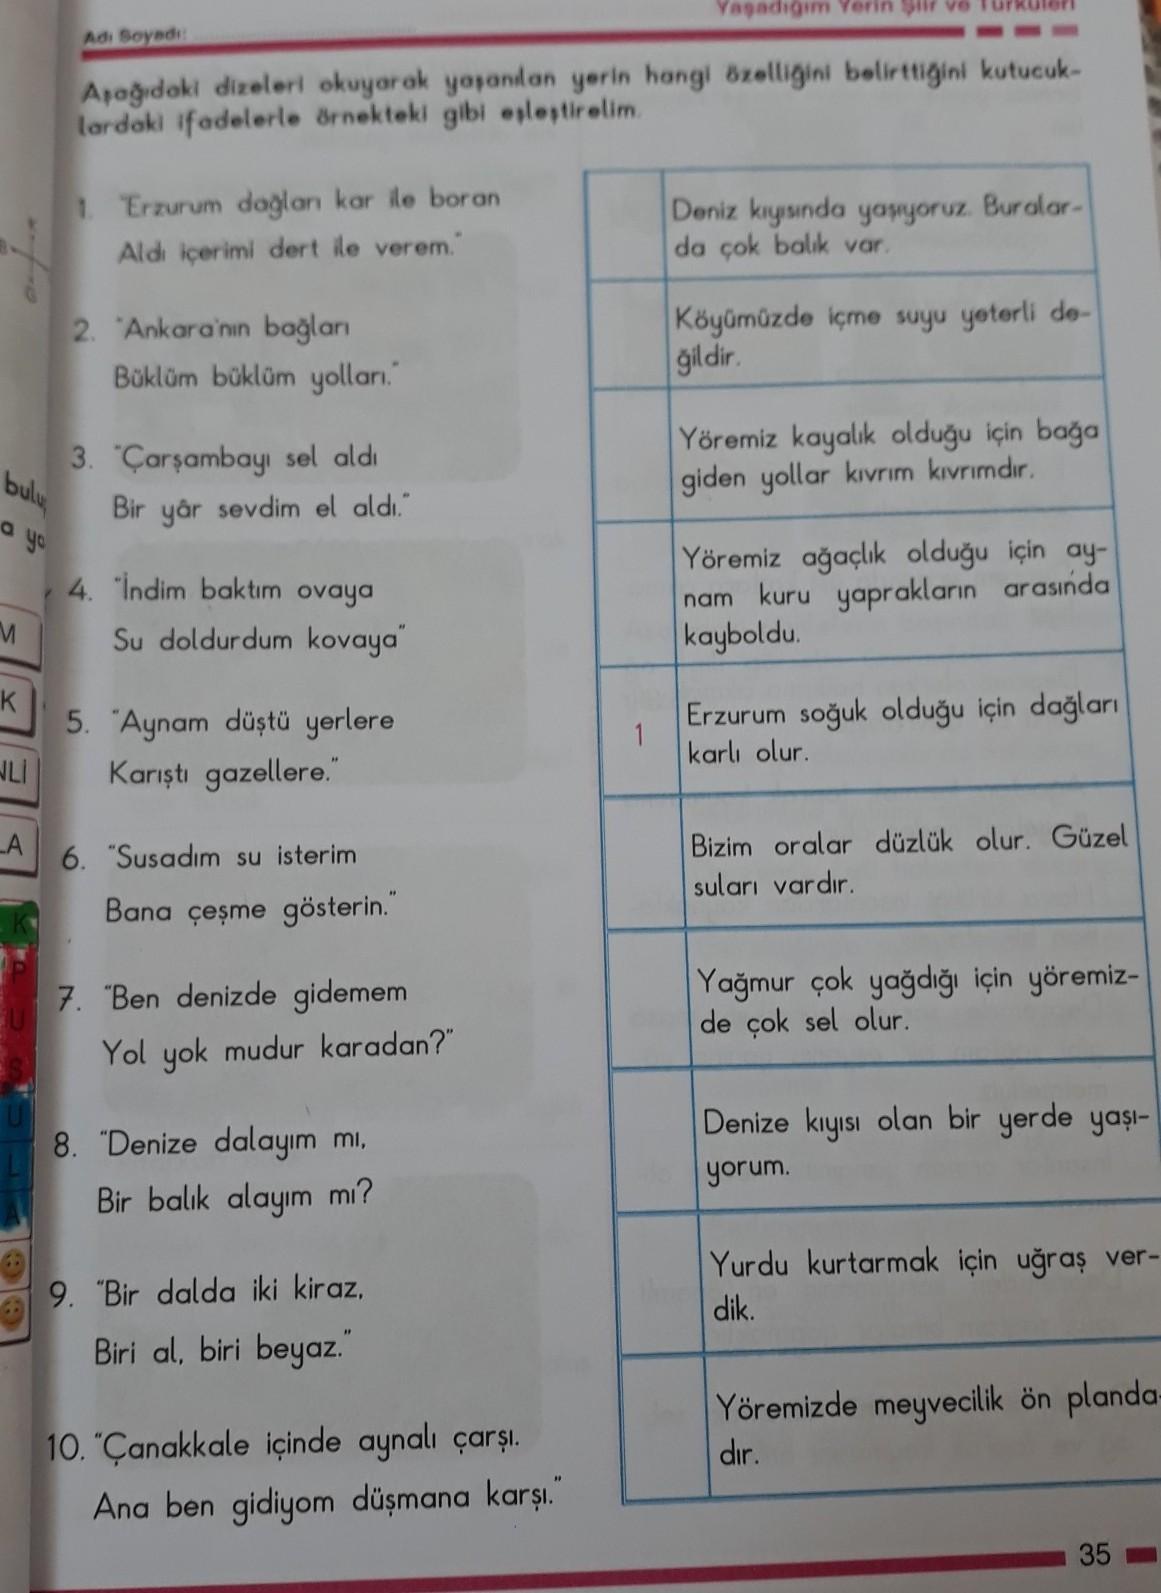 Yaşadığım Yerin Şiir ve Türküleri
Adı Soyadı:
Aşağıdaki dizeleri okuyarak yaşanılan yerin hangi özelliğini belirttiğini kutucuk-
lardaki ifadelerle örnekteki gibi eşleştirelim.
1. "Erzurum dağları kar ile boran
Aldı içerimi dert ile verem."
2. "Ankara'nın bağları
Büklüm büklüm yolları."
3. "Çarşambayı sel aldı
Bir yâr sevdim el aldı."
4. "İndim baktım ovaya
Su doldurdum kovaya"
5. "Aynam düştü yerlere
Karıştı gazellere."
6. "Susadım su isterim
Bana çeşme gösterin."
7. "Ben denizde gidemem
Yol yok mudur karadan?"
8. "Denize dalayım mı,
Bir balık alayım mı?
9. "Bir dalda iki kiraz,
Biri al, biri beyaz."
10. "Çanakkale içinde aynalı çarşı.
Ana ben gidiyom düşmana karşı."
Deniz kıyısında yaşıyoruz. Buralar-
da çok balık var.
Köyümüzde içme suyu yeterli de-
ğildir.
Yöremiz kayalık olduğu için bağa
giden yollar kıvrım kıvrımdır.
Yöremiz ağaçlık olduğu için ay-
nam kuru yaprakların arasında
kayboldu.
1
Erzurum soğuk olduğu için dağları
karlı olur.
Bizim oralar düzlük olur. Güzel
suları vardır.
Yağmur çok yağdığı için yöremiz-
de çok sel olur.
Denize kıyısı olan bir yerde yaşı-
yorum.
Yurdu kurtarmak için uğraş ver-
dik.
Yöremizde meyvecilik ön planda-
dır.
35
G
bulu
a ya
M
K
NLİ
LA
K
P
U
S
U
L
A